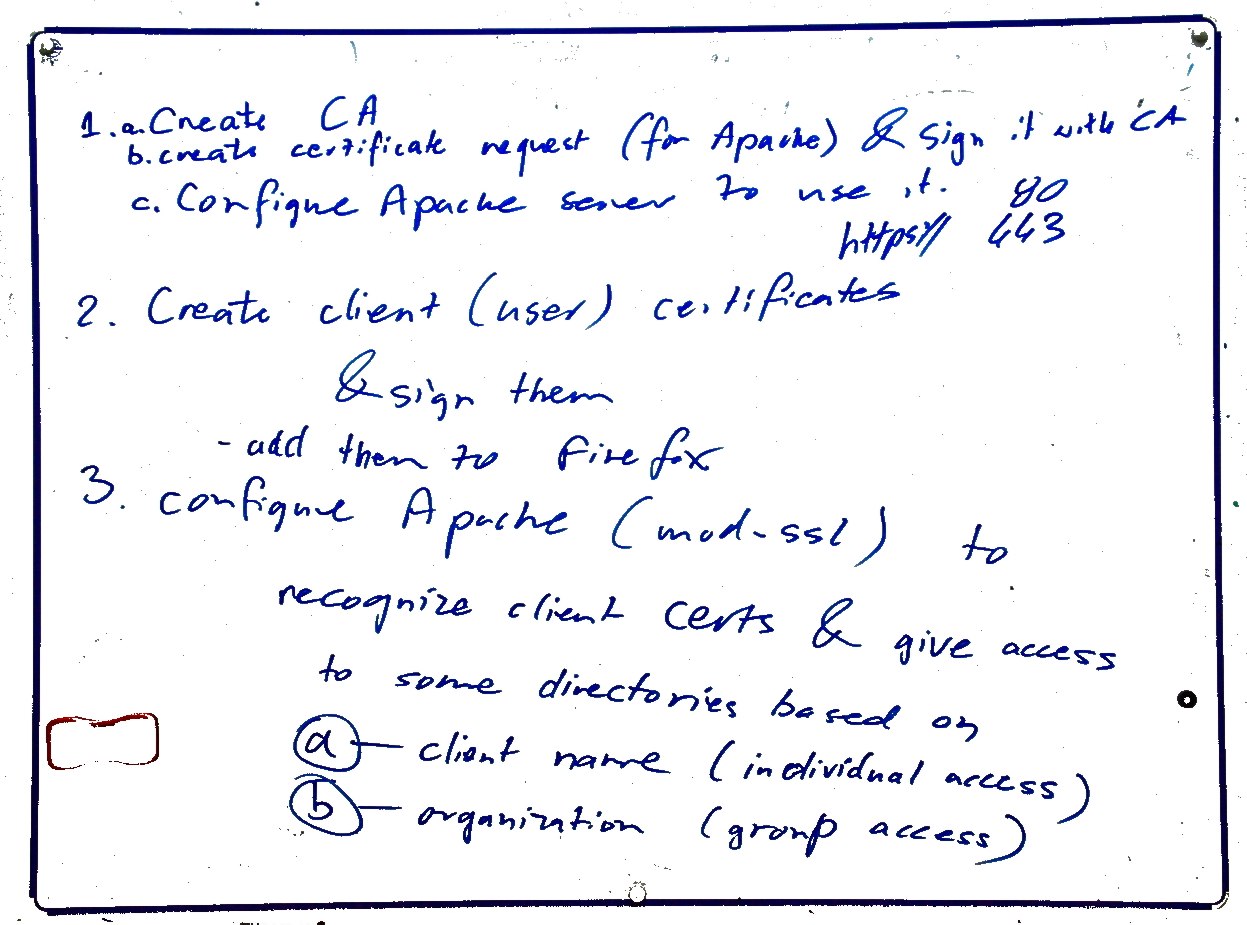 1. a. Create CA
b. create certificate request (for Apache) & sign it with CA
c. Configure Apache server to use it. 80
https:// 443
2. Create client (user) certificates
& sign them
- add them to Firefox
3. configure Apache (mod-ssl) to
recognize client certs & give access
to some directories based on
a — client name (individual access)
b — organization (group access)